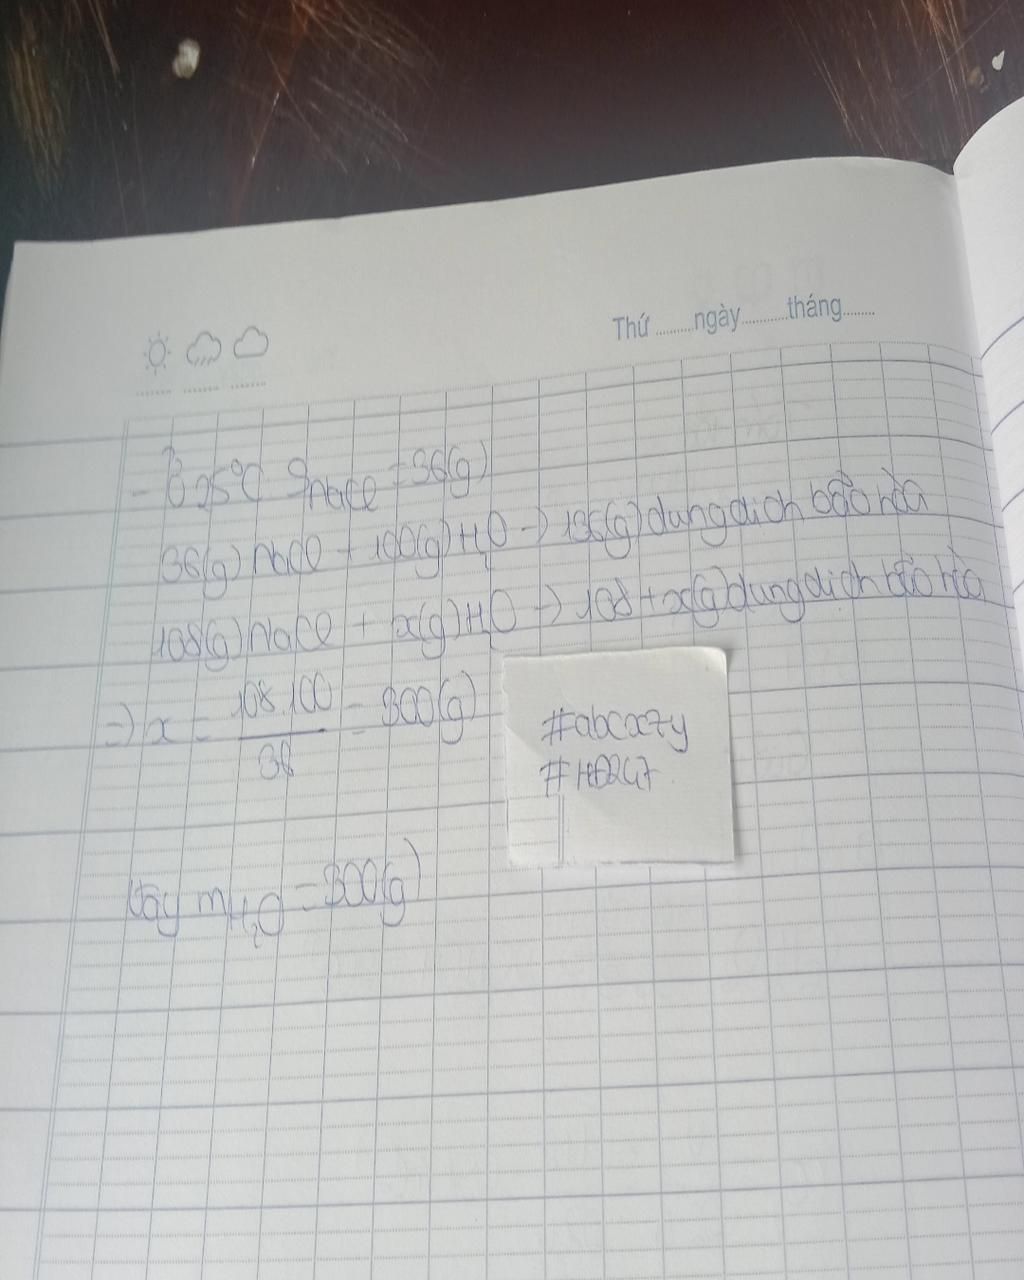 Thứ ........ngày..........tháng........
- Ở 25°C SNaCl = 36(g)
36(g) NaCl + 100(g) H2O → 136(g) dung dịch bão hòa
108(g) NaCl + x(g) H2O → 108 + x(g) dung dịch bão hòa
⇒ x = 108.100 / 36 = 300(g)
#abcxzy
#HĐ247
Vậy mH2O = 300(g)